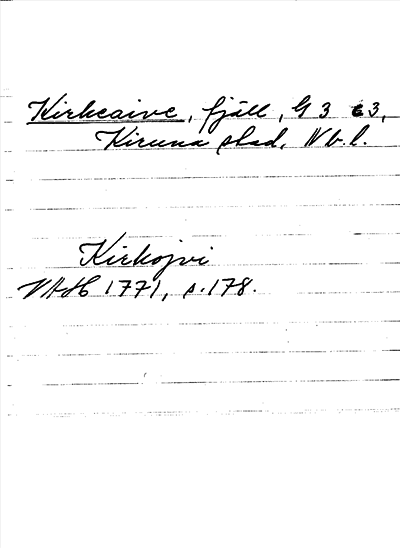 Kirkeaive, fjäll, G 3 c 3,
Kiruna stad, Nb. l.
Kirkojvi
VAH 1771, s. 178.